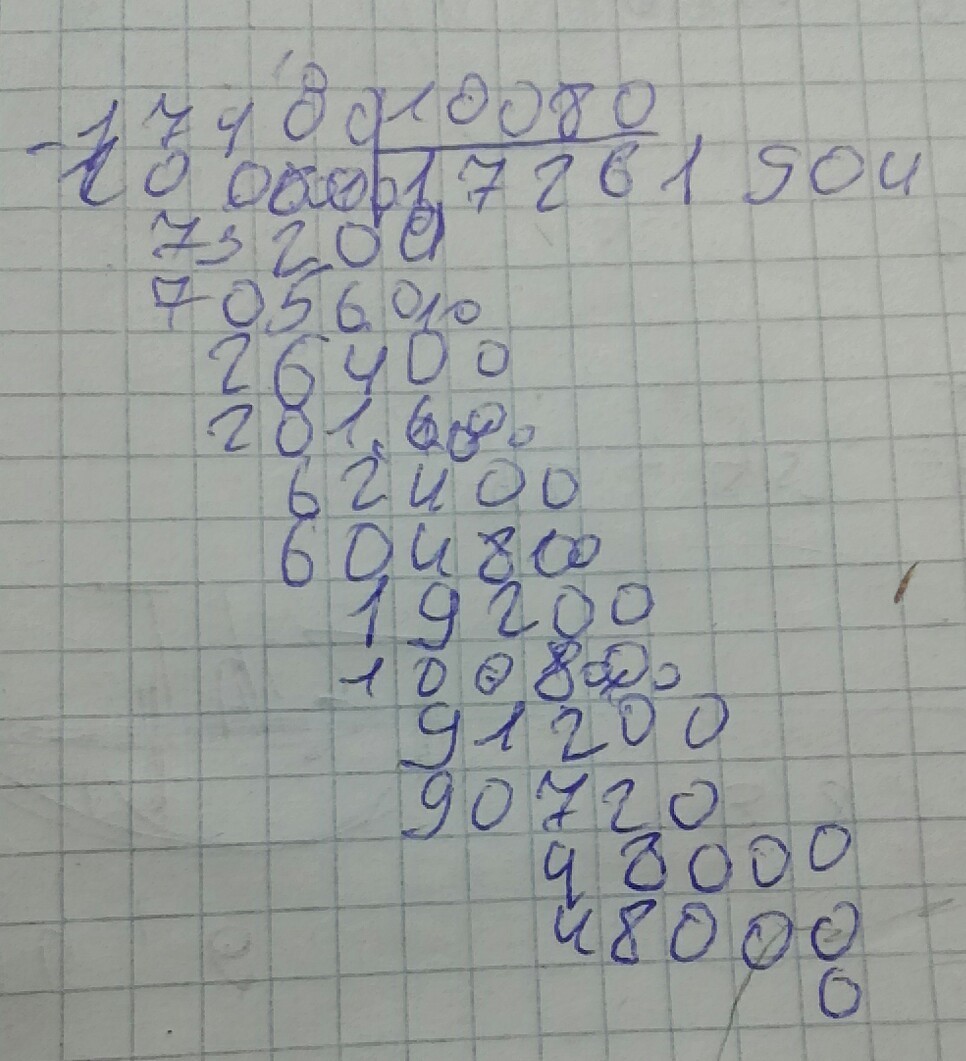 -17480 10080
10080 17261904
73200
70560
26400
20160
62400
60480
19200
10080
91200
90720
48000
48000
0